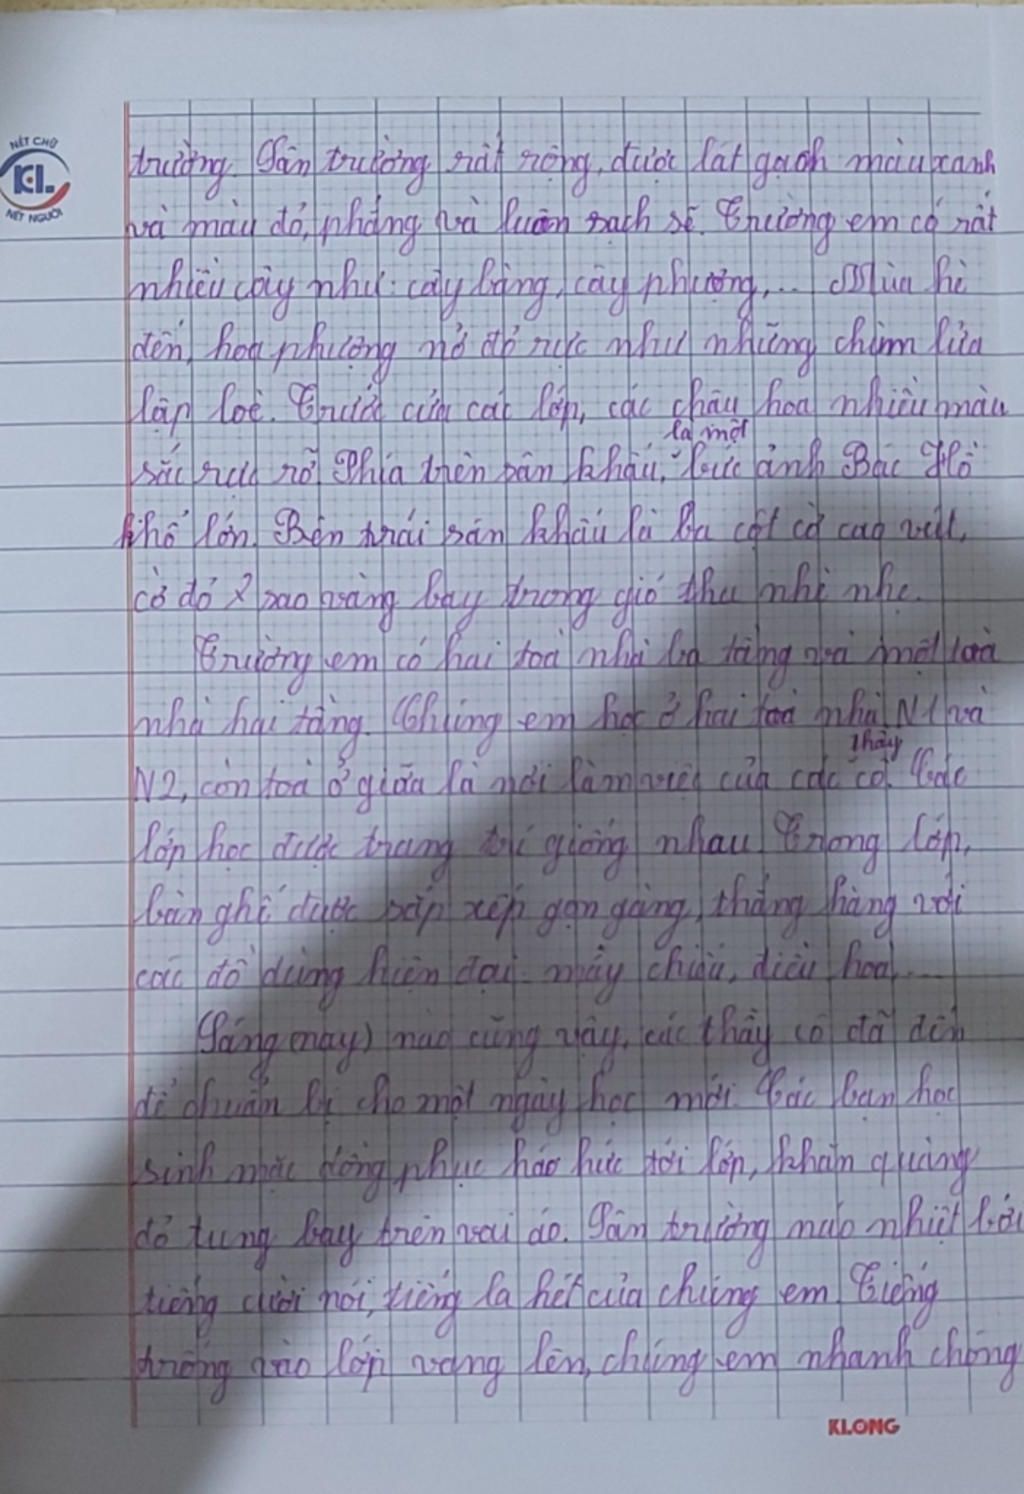 NÉT CHỮ
KL
NÉT NGƯỜI
trường. Sân trường rất rộng, được lát gạch màu xanh
và màu đỏ, phẳng và luôn sạch sẽ. Trường em có rất
nhiều cây như: cây bàng, cây phượng,... Mùa hè
đến, hoa phượng nở đỏ rực như những chùm lửa
lập loè. Trước cửa các lớp, các chậu hoa nhiều màu
là một
sắc rực rỡ. Phía trên sân khấu, bức ảnh Bác Hồ
khổ lớn. Bên trái sân khấu là ba cột cờ cao vút,
cờ đỏ sao vàng bay trong gió thu nhè nhẹ.
Trường em có hai toà nhà ba tầng và một toà
nhà hai tầng. Chúng em học ở hai toà nhà N1 và
thầy
N2, còn toà ở giữa là nơi làm việc của các cô. Các
lớp học được trang trí giống nhau. Trong lớp,
bàn ghế được sắp xếp gọn gàng, thẳng hàng với
các đồ dùng hiện đại: máy chiếu, điều hoà...
Sáng (nay) nào cũng vậy, các thầy cô đã đến
để chuẩn bị cho một ngày học mới. Các bạn học
sinh mặc đồng phục háo hức tới lớp, khăn quàng
đỏ tung bay trên vai áo. Sân trường náo nhiệt bởi
tiếng cười nói, tiếng la hét của chúng em. Tiếng
trống vào lớp vang lên, chúng em nhanh chóng
KLONG